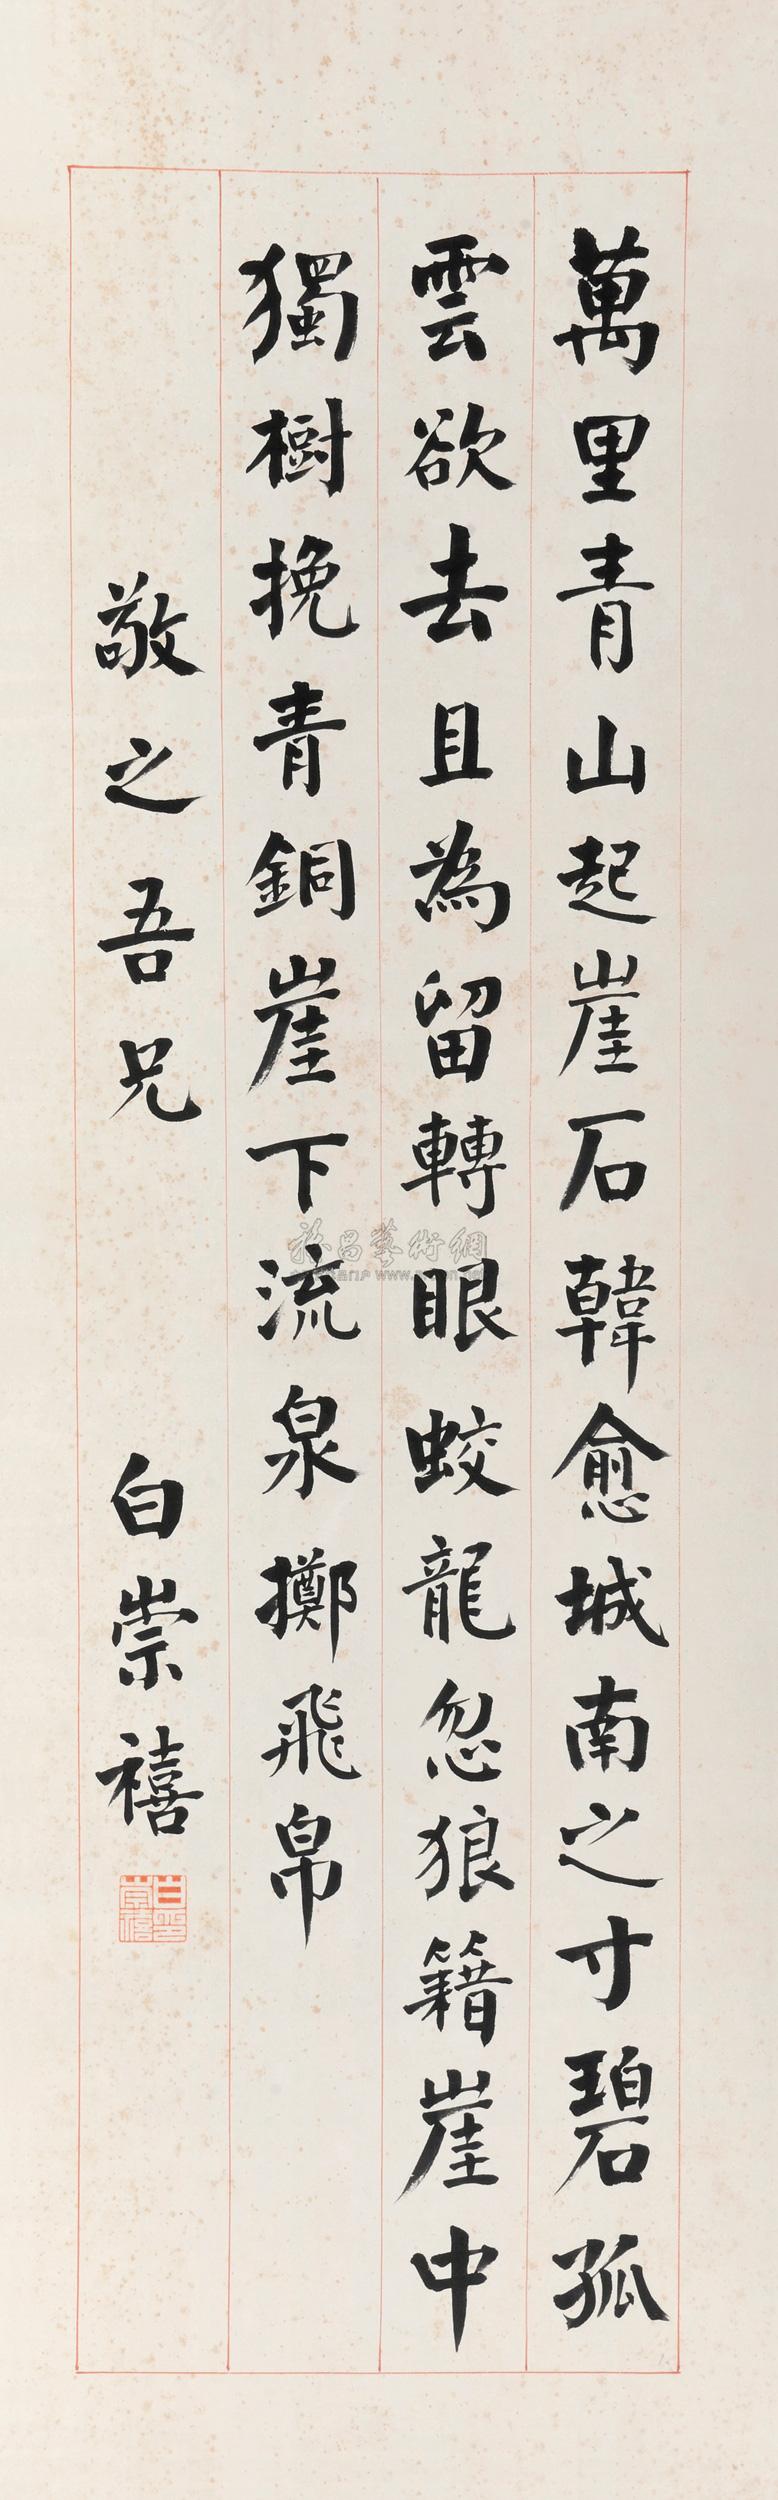 萬里青山起崖石韓愈城南之寸碧孤
雲欲去且為留轉眼蛟龍忽狼籍崖中
獨樹挽青銅崖下流泉擲飛帛
敬之吾兄 白崇禧